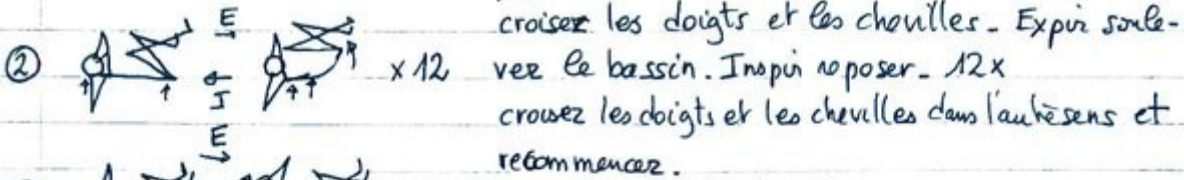 croisez les doigts et les chevilles - Expir soule-
② E I × 12 vez le bassin. Inspir reposer - 12x
croisez les doigts et les chevilles dans l'autre sens et
E recommencez.